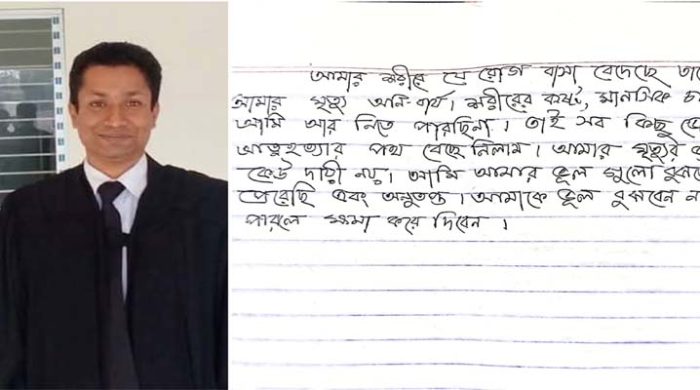 আমার শরীরে যে রোগ বাসা বেধেছে
আমার মৃত্যু অনিবার্য। শরীরের কষ্ট, মানসিক
আমি আর নিতে পারছিনা। তাই সব কিছু
আত্মহত্যার পথ বেছে নিলাম। আমার মৃত্যুর
কেউ দায়ী নয়। আমি আমার ভুল গুলো
পেরেছি এবং অনুতপ্ত। আমাকে ভুল বুঝবেন
পারলে ক্ষমা করে দিবেন।